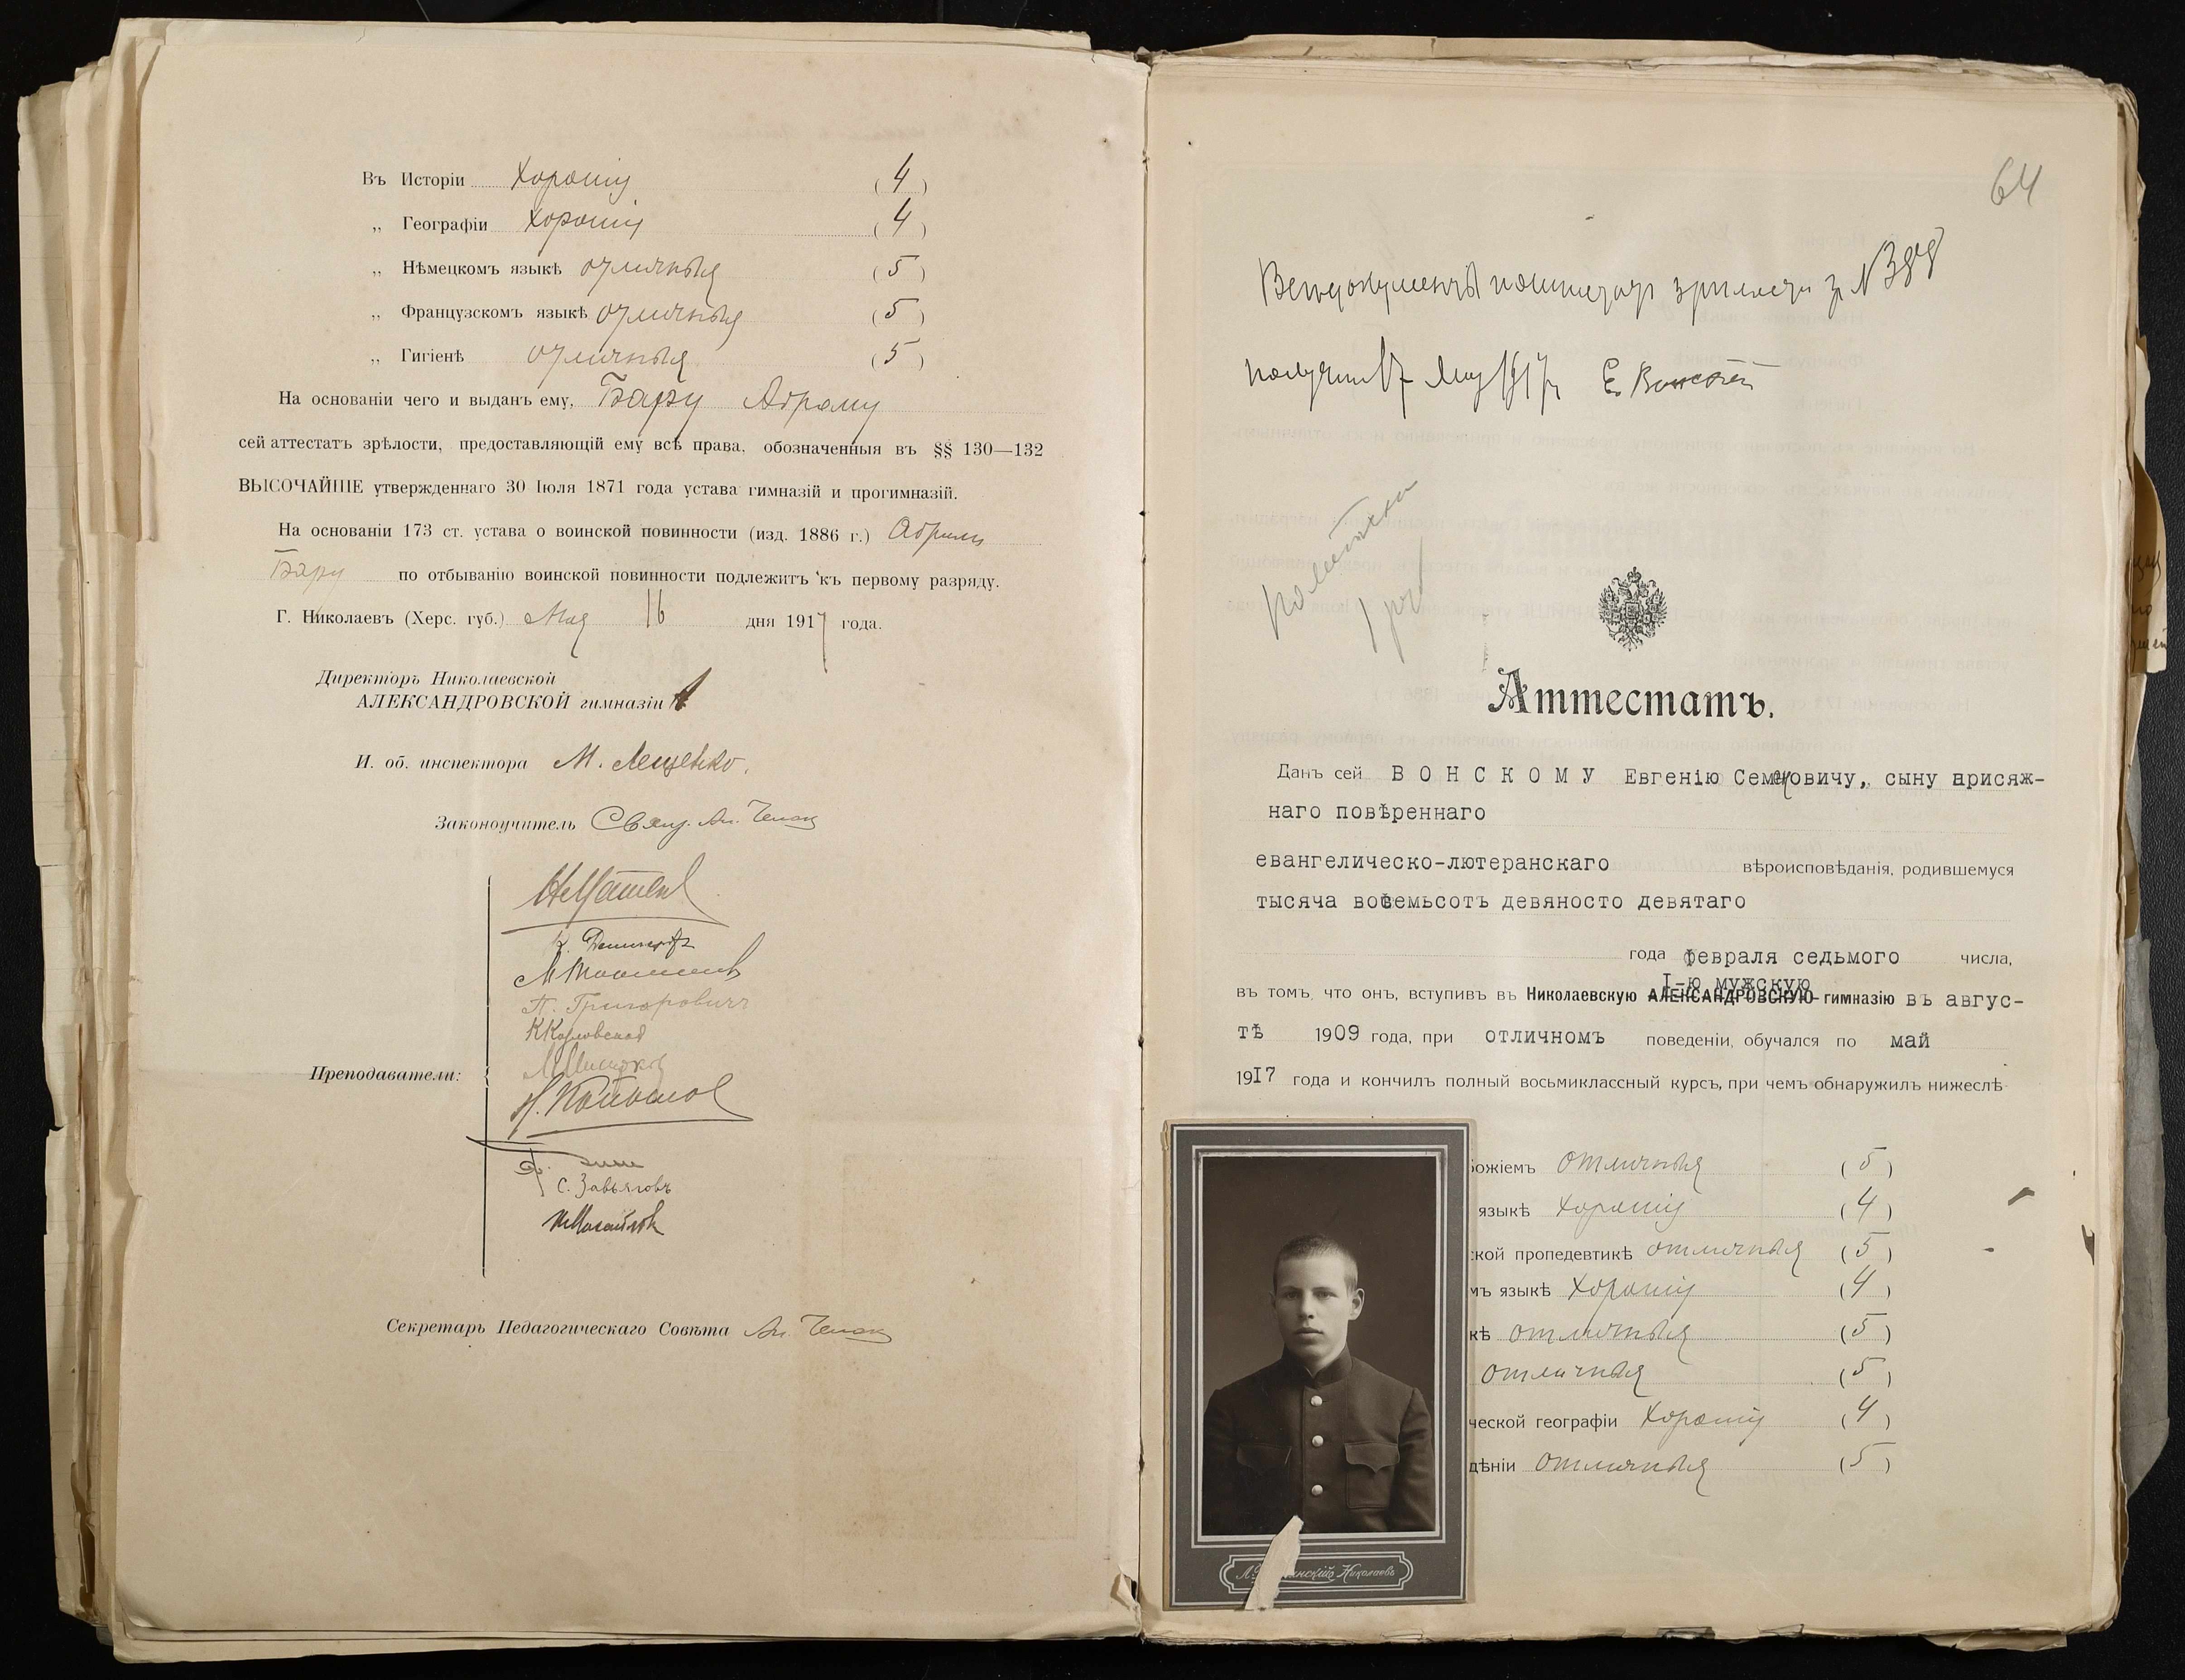 Въ Исторіи хорошія (4)
„ Географіи хорошія (4)
„ Нѣмецкомъ языкѣ отличныя (5)
„ Французскомъ языкѣ отличныя (5)
„ Гигіенѣ отличныя (5)
На основаніи чего и выданъ ему, Бару Абраму
сей аттестатъ зрѣлости, предоставляющій ему всѣ права, обозначенныя въ §§ 130—132
ВЫСОЧАЙШЕ утвержденнаго 30 Іюля 1871 года устава гимназій и прогимназій.
На основаніи 173 ст. устава о воинской повинности (изд. 1886 г.) Абрамъ
Бару по отбыванію воинской повинности подлежитъ къ первому разряду.
Г. Николаевъ (Херс. губ.) Мая 16 дня 1917 года.
Директоръ Николаевской
АЛЕКСАНДРОВСКОЙ гимназіи
И. об. инспектора М. Лещенко.
Законоучитель Свящ. Ан.
Преподаватели:
П. Григоровичъ
С. Завьяловъ
Секретарь Педагогическаго Совѣта Ан.
64
зрѣлости за N
получилъ 17 Мая 1917 г. Е. Вонскій
Аттестатъ.
Данъ сей ВОНСКОМУ Евгенію Семеновичу, сыну присяж-
наго повѣреннаго
евангелическо-лютеранскаго вѣроисповѣданія, родившемуся
тысяча восемьсотъ девяносто девятаго
года февраля седьмого числа,
I-ю мужскую
въ томъ, что онъ, вступивъ въ Николаевскую АЛЕКСАНДРОВСКУЮ гимназію въ авгус-
тѣ 1909 года, при отличномъ поведеніи, обучался по май
1917 года и кончилъ полный восьмиклассный курсъ, при чемъ обнаружилъ нижеслѣ-
ожіемъ отличныя (5)
языкѣ хорошія (4)
кой пропедевтикѣ отличныя (5)
мъ языкѣ хорошія (4)
кѣ отличныя (5)
отличныя (5)
ческой географіи хорошія (4)
дѣніи отличныя (5)
Николаевъ